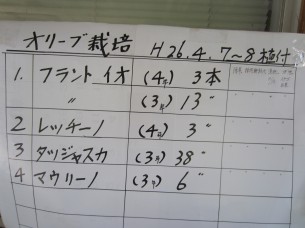 オリーブ栽培 H26.4.7～8植付
1. フラントイオ (4年) 3本
〃 (3年) 13〃
2 レッチーノ (4年) 3〃
3 タッジャスカ (3年) 38〃
4 マウリーノ (3年) 6〃